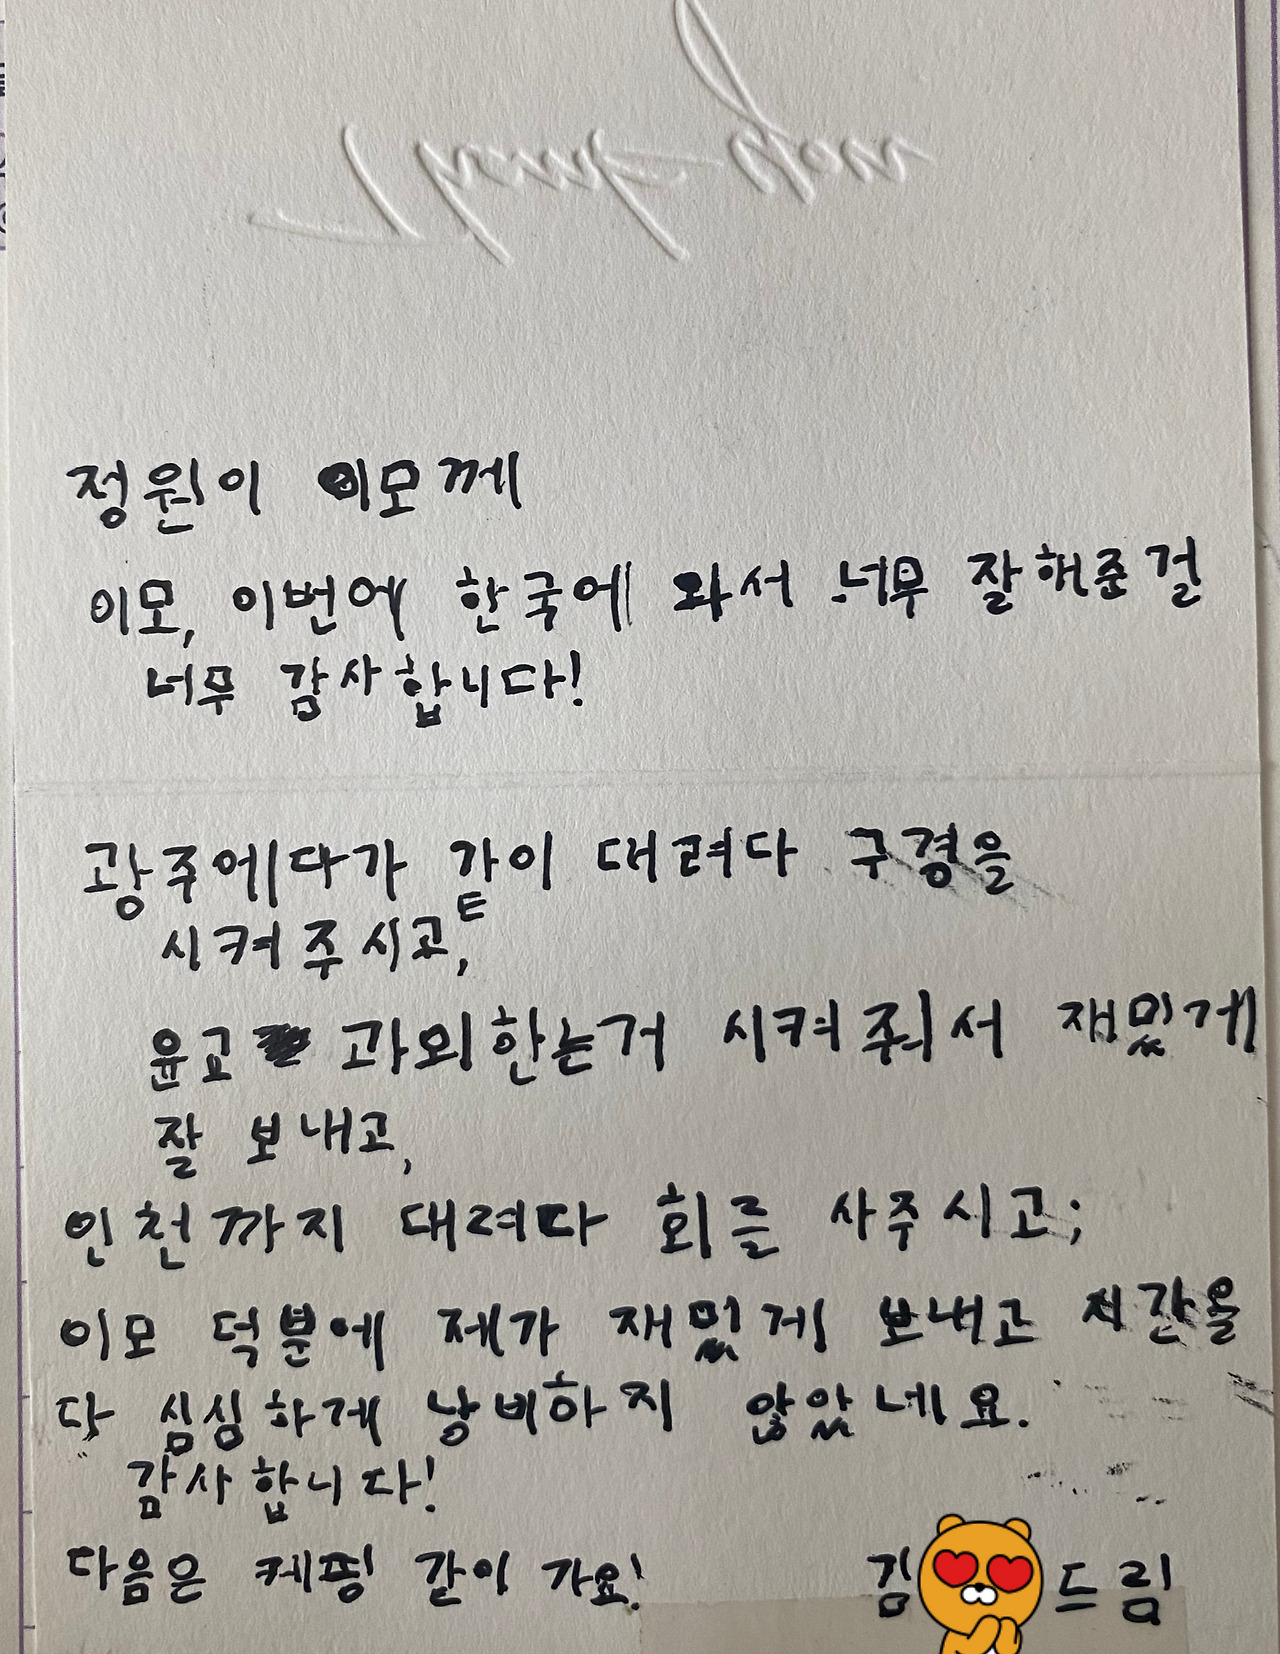 정원이 이모께
이모, 이번에 한국에 와서 너무 잘해준걸
너무 감사합니다!
광주에다가 같이 대려다 구경을
시켜주시고,
윤고 과외한는거 시켜줘서 재밌게
잘 보내고,
인천까지 대려다 회를 사주시고;
이모 덕분에 제가 재밌게 보내고 시간을
다 심심하게 낭비하지 않았네요.
감사합니다!
다음은 케핑 같이 가요!
김 드림